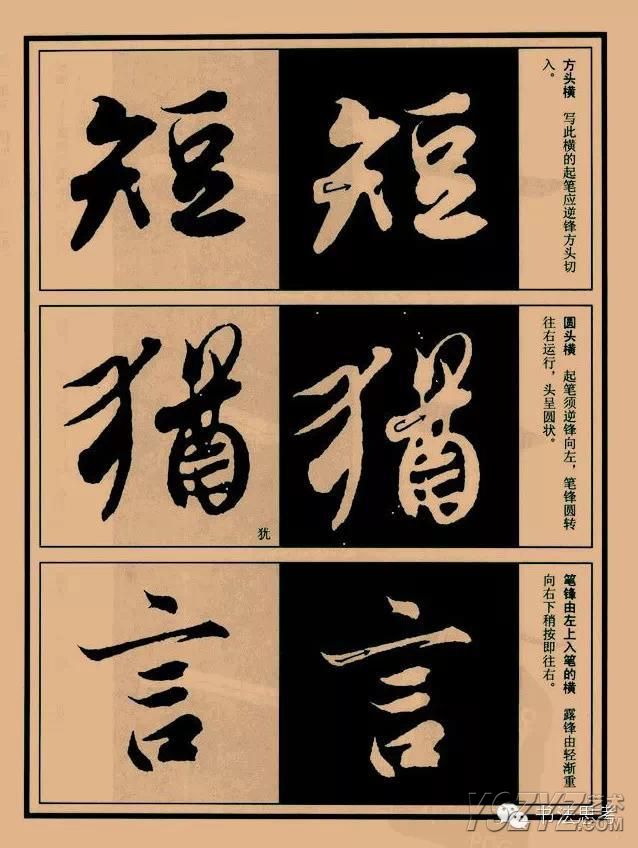 短
短
方头横　写此横的起笔应逆锋方头切
入。
猶
犹
猶
圆头横　起笔须逆锋向左，笔锋圆转
往右运行，头呈圆状。
言
言
笔锋由左上入笔的横　露锋由轻渐重
向右下稍按即往右。
YGZYZ艺术
书法思考